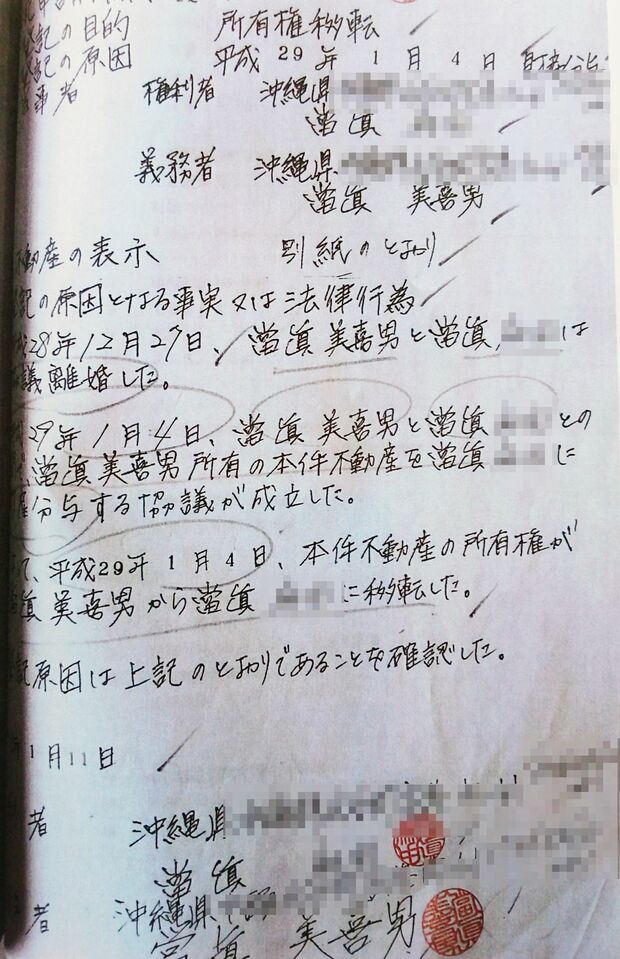 記の目的 所有権移転
記の原因 平成29年1月4日 財産分与
事者 権利者 沖縄県
當眞
義務者 沖縄県
當眞 美喜男
動産の表示 別紙のとおり
記の原因となる事実又は法律行為
28年12月27日、當眞美喜男と當眞 は
議離婚した。
29年1月4日、當眞美喜男と當眞 との
當眞美喜男所有の本件不動産を當眞 に
分与する協議が成立した。
て、平成29年1月4日、本件不動産の所有権が
眞美喜男から當眞 に移転した。
記原因は上記のとおりであることを確認した。
1月11日
者 沖縄県
當眞
者 沖縄県
當眞 美喜男